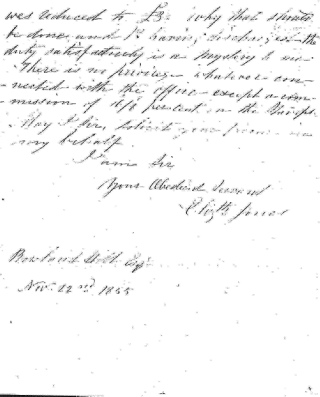 was reduced to £3. why that should
be done, and I having discharged the
duty satisfactorily is a mystery to me
There is no privilege whatever con-
nected with the office except a com-
mission of
percent on the
May I Sir, solicit your on
my behalf
I am Sir
Your Obedient Servant
Elizth Jones
Rowland Hill Esqr
Nov. 22nd 1855